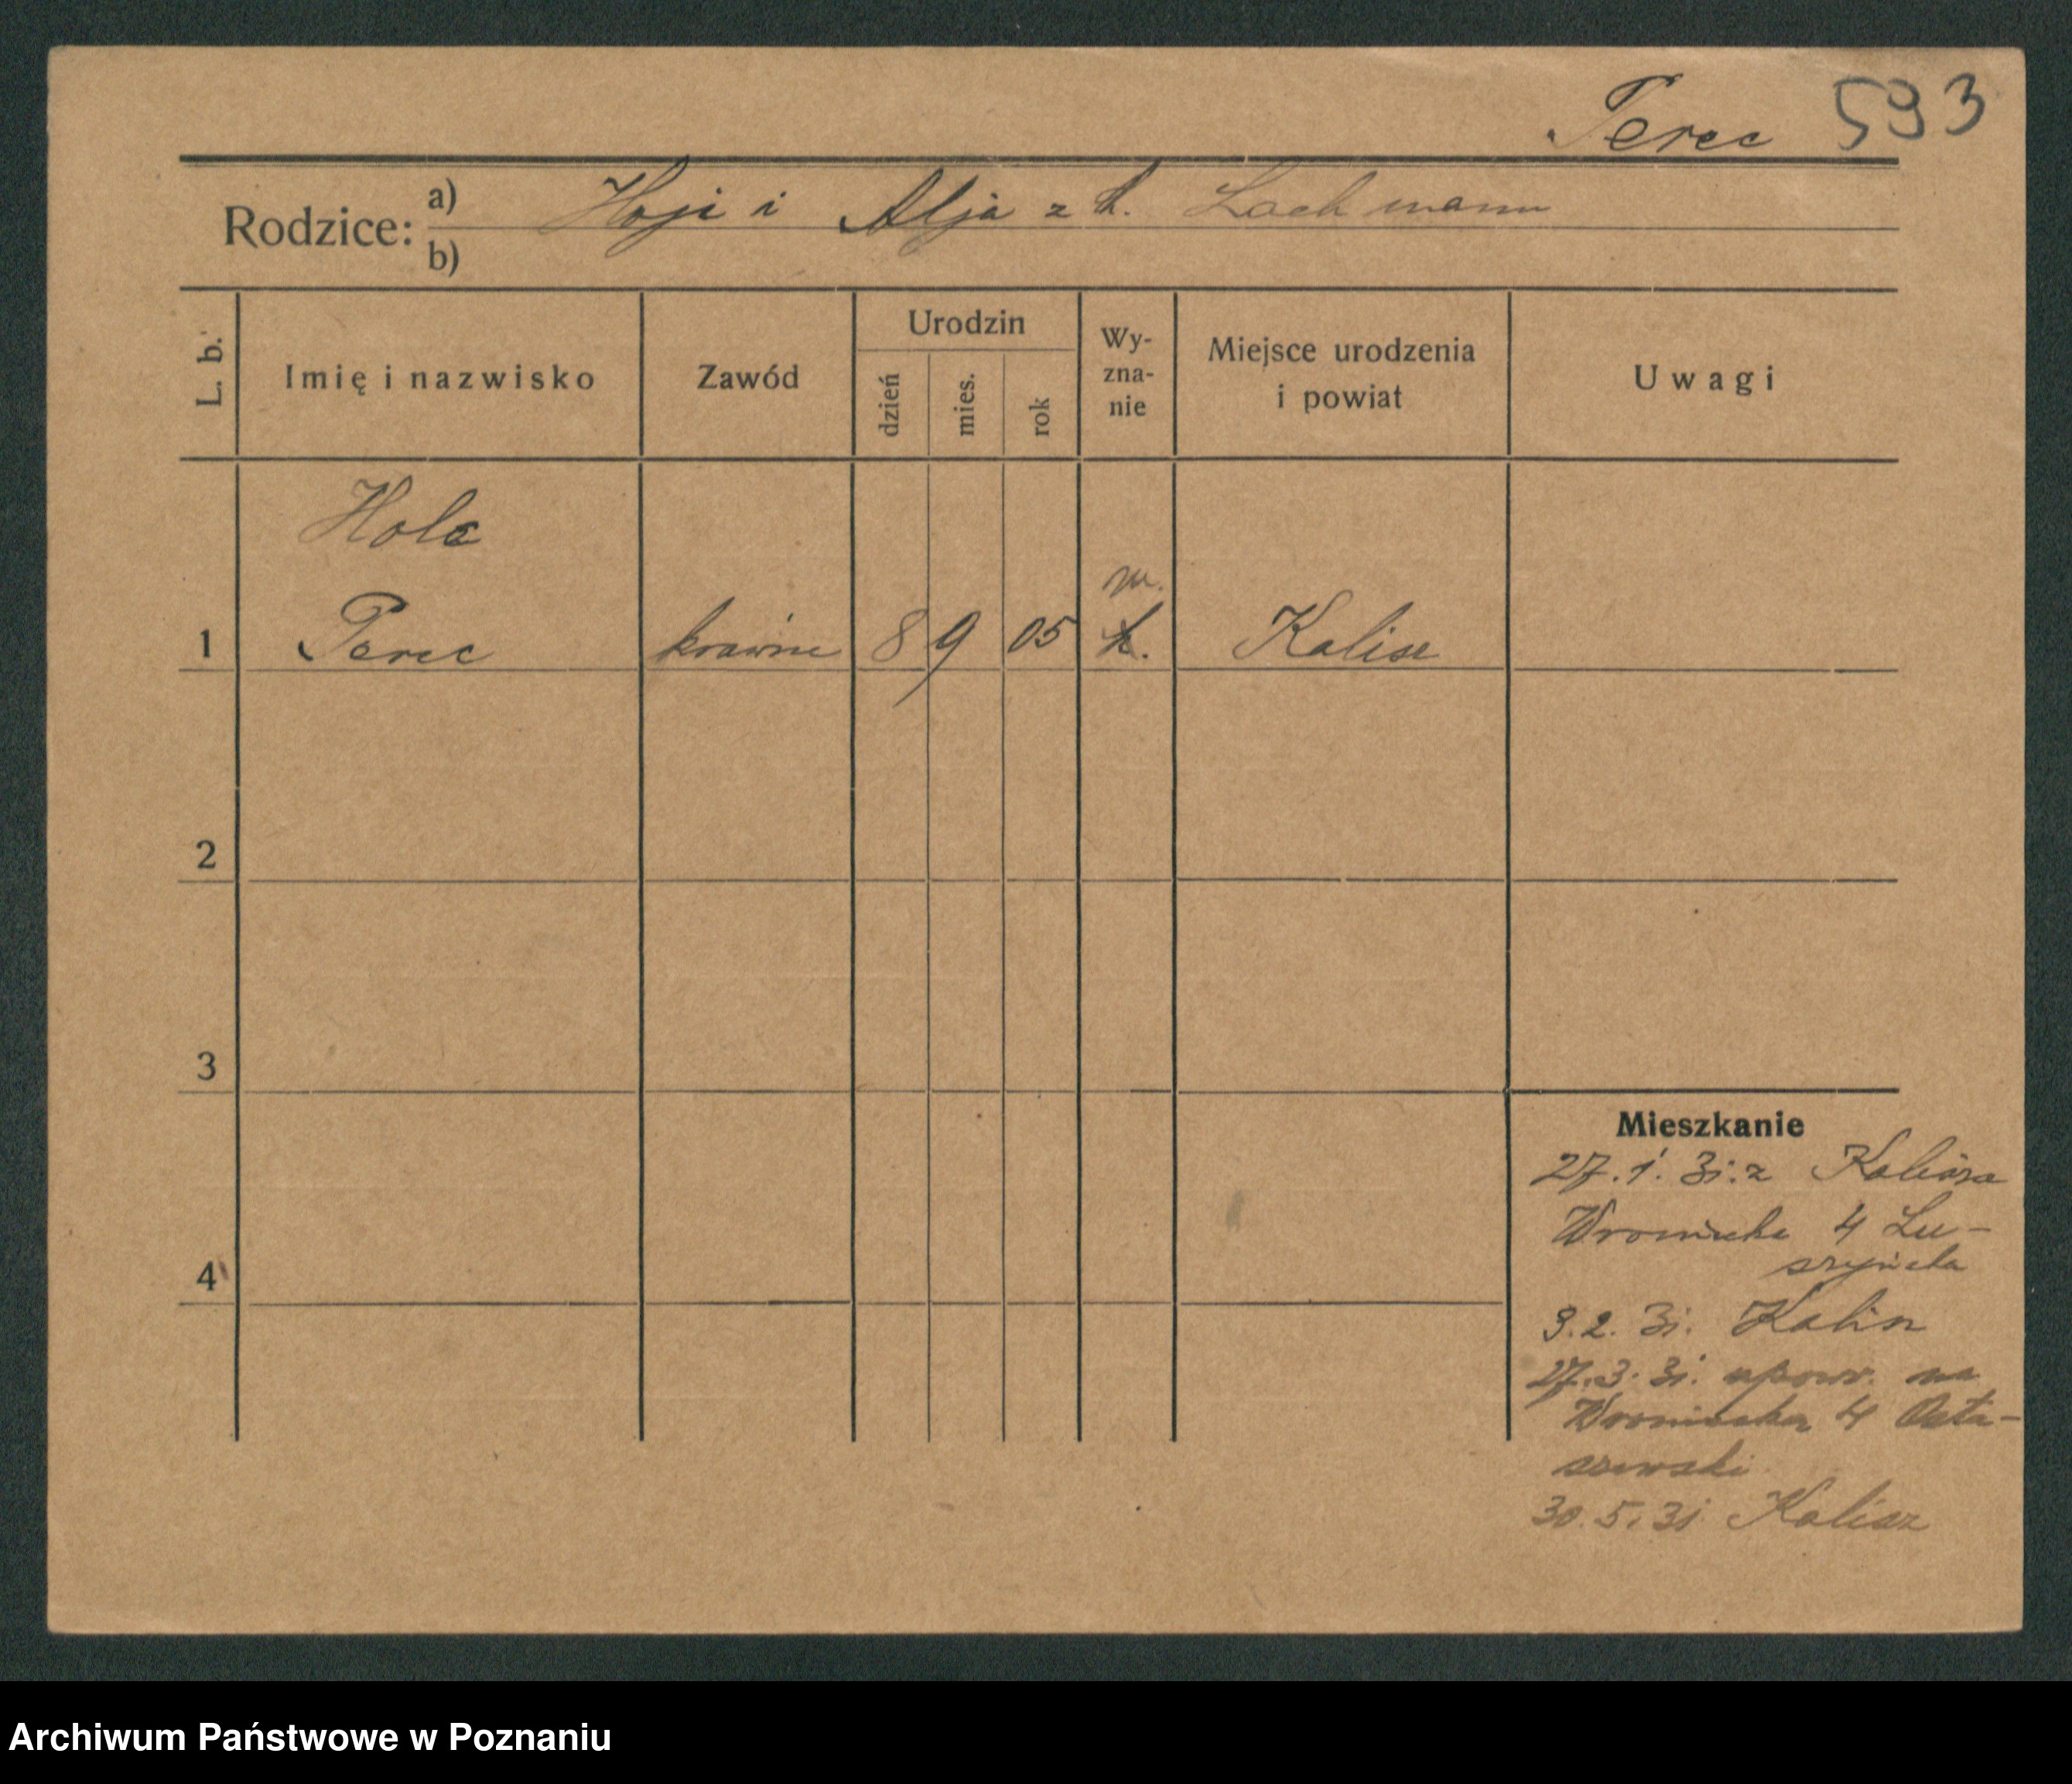 Perec 593
Rodzice: a) Hoji i Alja z d. Lachmann
b)
L. b.
Imię i nazwisko
Zawód
Urodzin
dzień
mies.
rok
Wy-
zna-
nie
Miejsce urodzenia
i powiat
Uwagi
Hola
m.
1 Perec 8 9 05 k. Kalisz
2
3
4
Mieszkanie
27.1.31. z Kalisza
Wroniecka 4 Lu-
szyńska
3.2.31. Kalisz
27.3.31. na
Wroniecka 4 Osta-
szewski
30.5.31 Kalisz
Archiwum Państwowe w Poznaniu